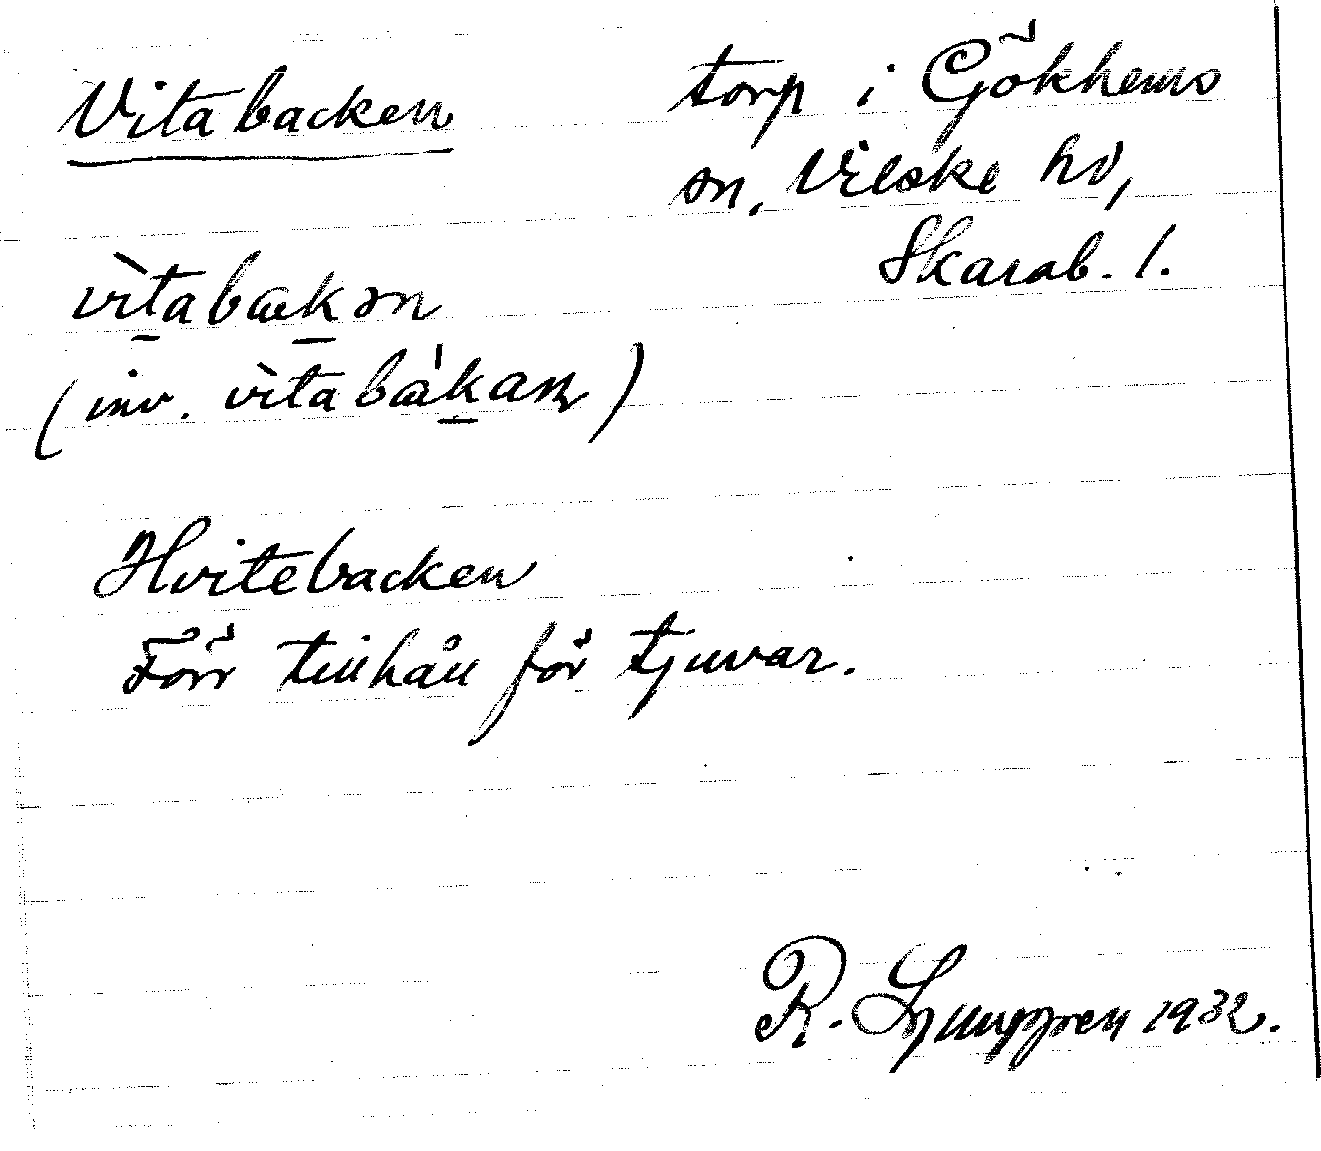 Vitabacken
torp i Gökhems
sn, Vilske hd,
Skarab. l.
vìtabakən
(inv. vìtabàkan)
Hvitebacken
Förr tillhåll för tjuvar.
R. Ljunggren 1932.